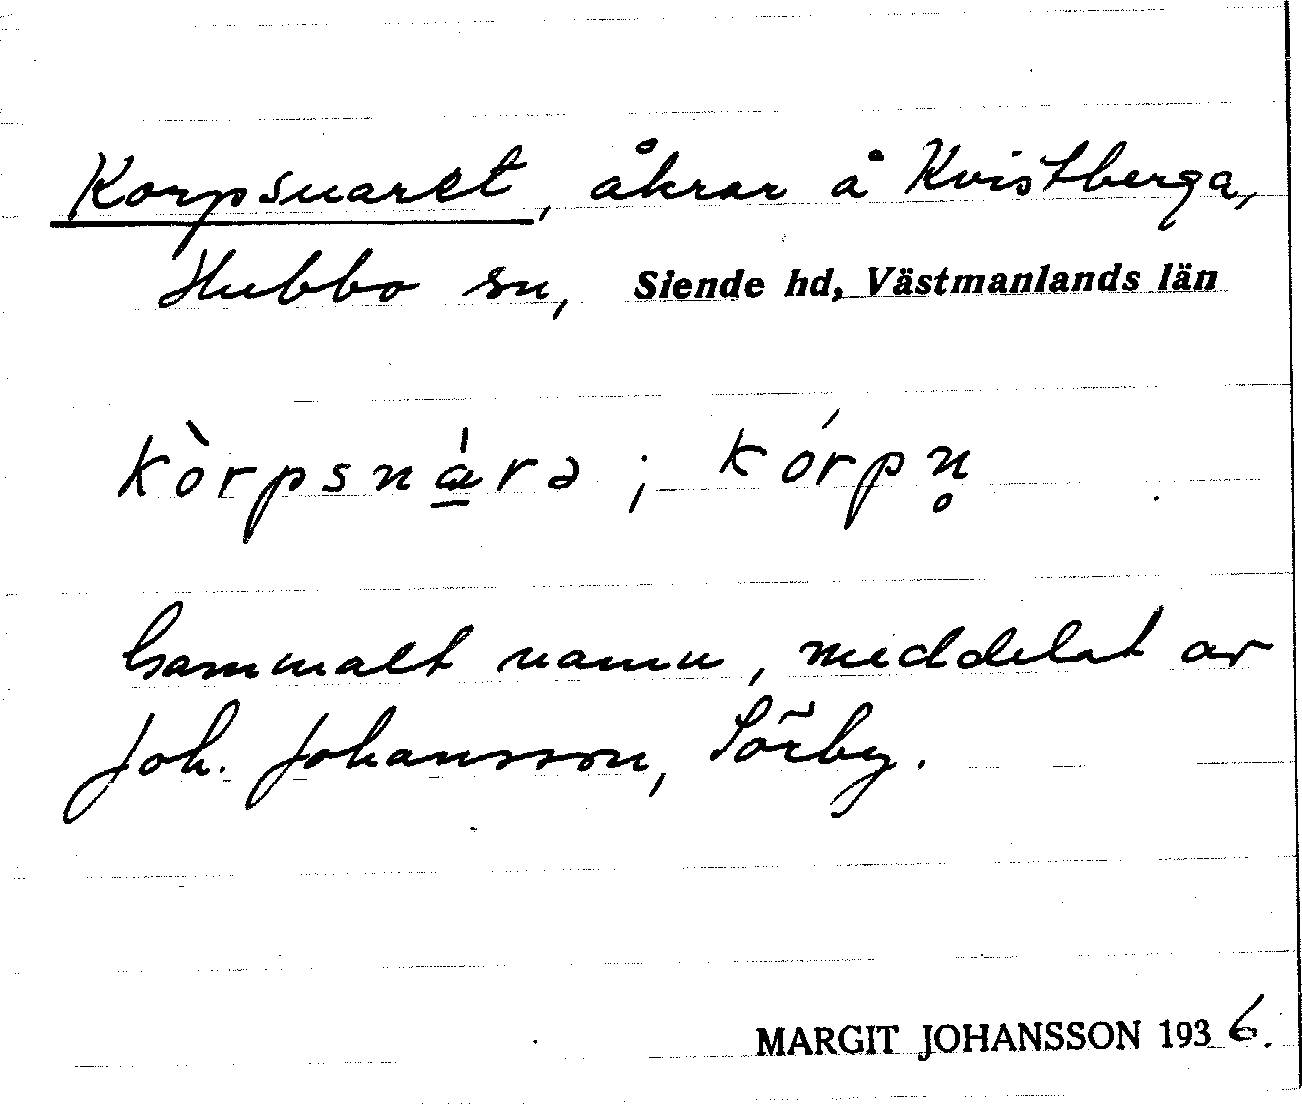 Korpsnaret, åkrar å Kvistberga,
Hubbo sn, Siende hd, Västmanlands län
kòrpsnàrə ; kórpn̥
Gammalt namn, meddelat av
Joh. Johansson, Sörby.
MARGIT JOHANSSON 1936.